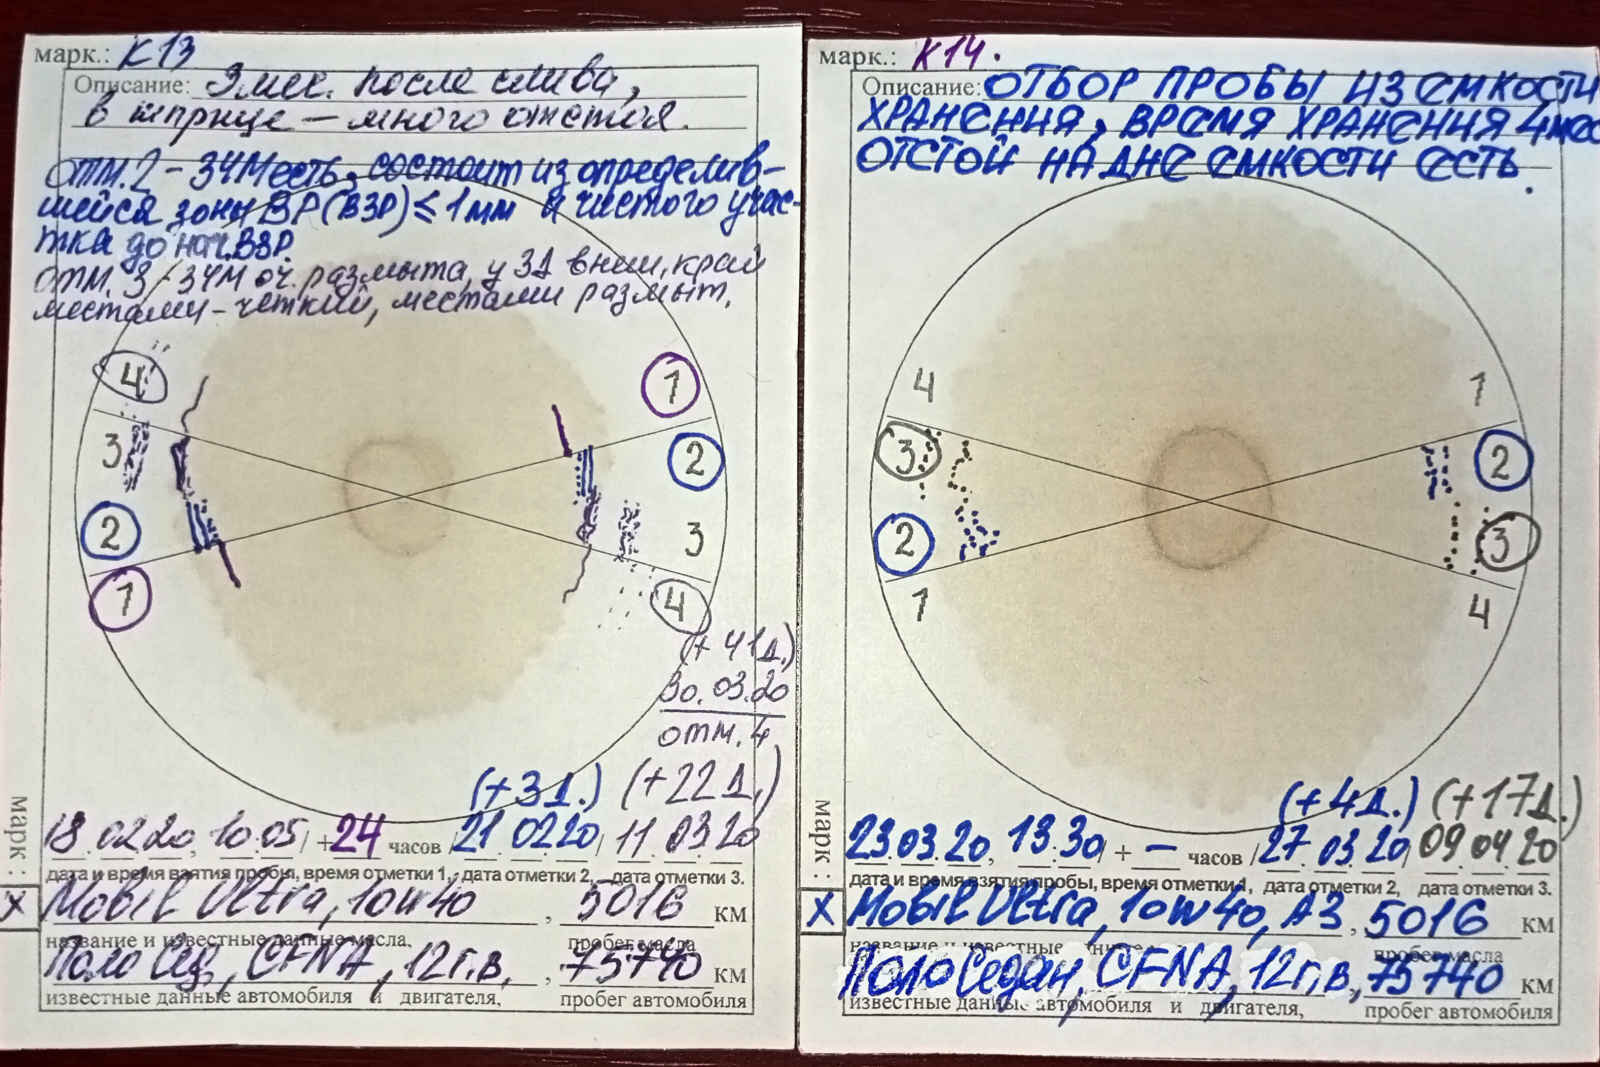 марк.: К13
Описание: 3 мес. после слива,
в шприце – много отстоя.
отм. 2 – ЗЧМ есть, состоит из определив-
шейся зоны ВР(ВЗР) ≤ 1 мм и чистого учас-
тка до нач. ВЗР.
отм. 3 – ЗЧМ оч. размыта, у ЗД внеш. край
местами – чёткий, местами размыт.
4
1
3
2
2
3
1
4
(+ 41 д.)
30.03.20
отм. 4
(+3 д.) (+22 д.)
марк :
18.02.20, 10.05 / +24 часов / 21.02.20 / 11.03.20
дата и время взятия пробы, время отметки 1, дата отметки 2, дата отметки 3.
X
Mobil Ultra, 10w40, 5016 км
название и известные данные масла, пробег масла
Поло Сед, CFNA, 12 г.в., 75740 км
известные данные автомобиля и двигателя, пробег автомобиля
марк.: К14.
Описание: ОТБОР ПРОБЫ ИЗ ЕМКОСТИ
ХРАНЕНИЯ, ВРЕМЯ ХРАНЕНИЯ 4 мес
ОТСТОЙ НА ДНЕ ЕМКОСТИ ЕСТЬ.
4
1
3
2
2
3
1
4
(+4 д.) (+17 д.)
марк :
23.03.20, 13.30 / + – часов / 27.03.20 / 09.04.20
дата и время взятия пробы, время отметки 1, дата отметки 2, дата отметки 3.
X
Mobil Ultra, 10w40, А3, 5016 км
название и известные данные пробег масла
Поло Седан, CFNA, 12 г.в., 75740 км
известные данные автомобиля и двигателя, пробег автомобиля